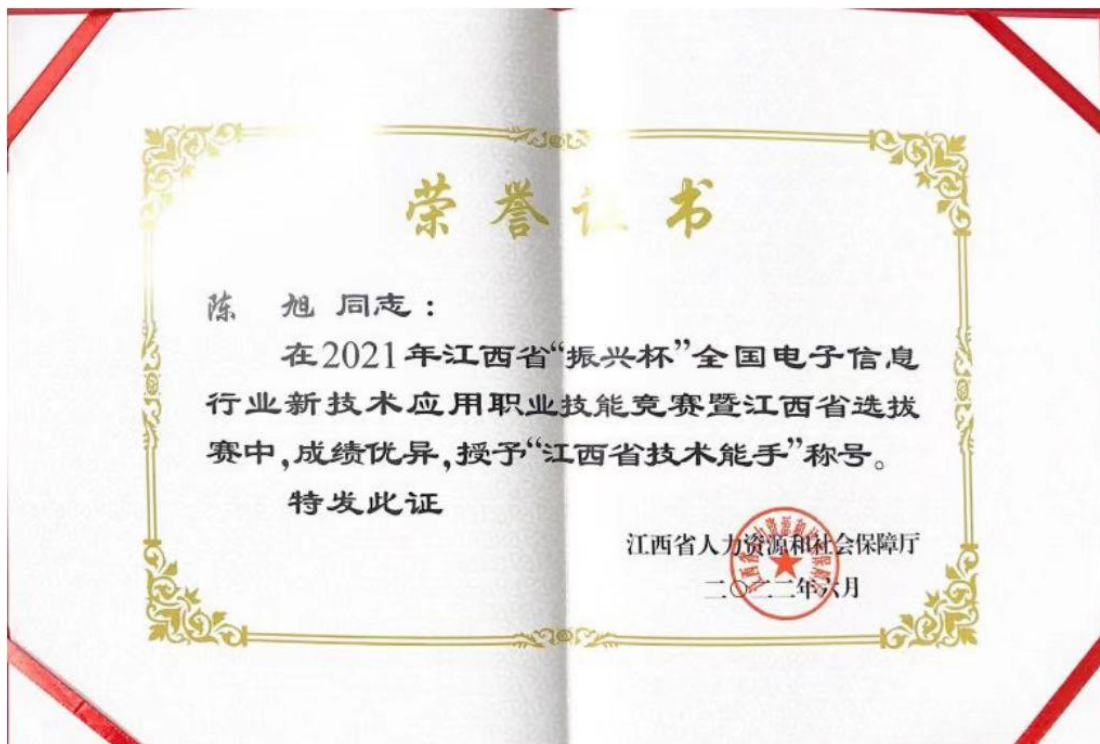 荣誉证书
陈 旭 同志：
在2021年江西省“振兴杯”全国电子信息
行业新技术应用职业技能竞赛暨江西省选拔
赛中,成绩优异,授予“江西省技术能手”称号。
特发此证
江西省人力资源和社会保障厅
二〇二二年六月